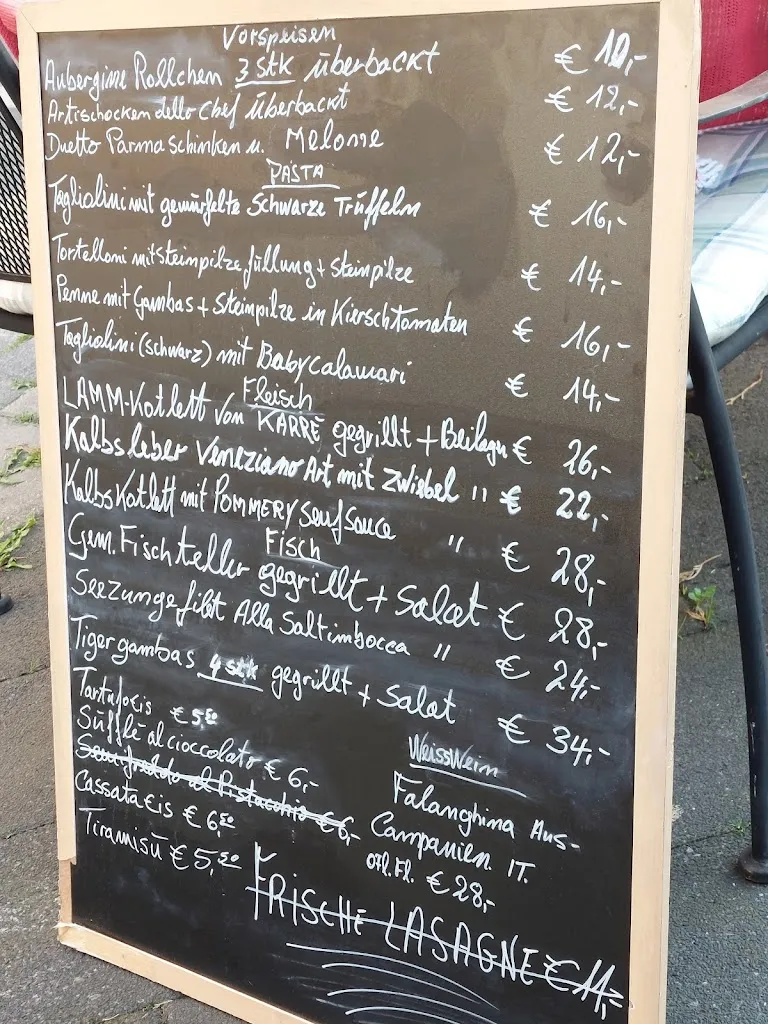 Vorspeisen
Aubergine Rollchen 3 Stk überbackt € 10,-
Artischocken dello chef Überbackt € 12,-
Duetto Parma schinken u. Melone € 12,-
PASTA
Tagliolini mit gewürfelte Schwarze Trüffeln € 16,-
Tortelloni mit steinpilze füllung + Steinpilze € 14,-
Penne mit Gambas + Steinpilze in Kierschtomaten € 16,-
Tagliolini (schwarz) mit Babycalamari € 14,-
Fleisch
LAMM-Kotlett von KARRÈ gegrillt + Beilagen € 26,-
Kalbsleber Veneziano Art mit Zwiebel " € 22,-
Kalbs Kotlett mit POMMERY Senf Sauce " € 28,-
Fisch
Gem. Fischteller gegrillt + Salat € 28,-
Seezungefilet Alla Saltimbocca " € 24,-
Tigergambas 4 stk gegrillt + Salat € 34,-
Tartufoeis € 5,50
Süfflè al cioccolato € 6,-
Semifreddo al Pistacchio € 6,-
Cassata eis € 6,50
Tiramisù € 5,50
WeissWein
Falanghina Aus-
Campanien. IT.
0fl. Fl. € 28,-
FRISCHE LASAGNE € 14,-